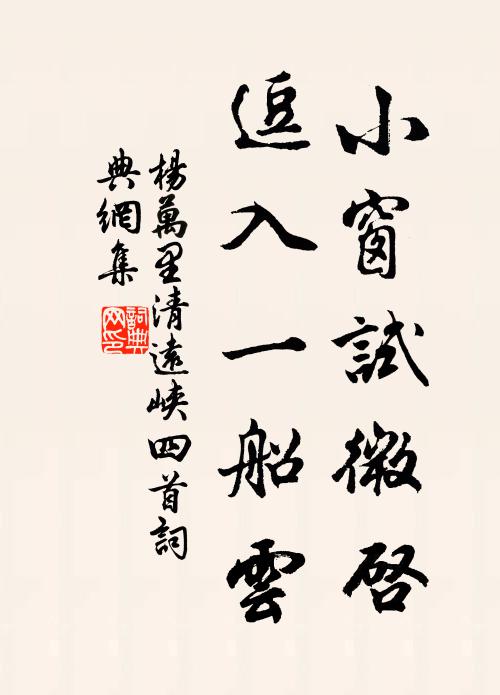 小窗試微啓
逗入一船雲
楊萬里清遠峽四首詞
典網集
詞典
网印